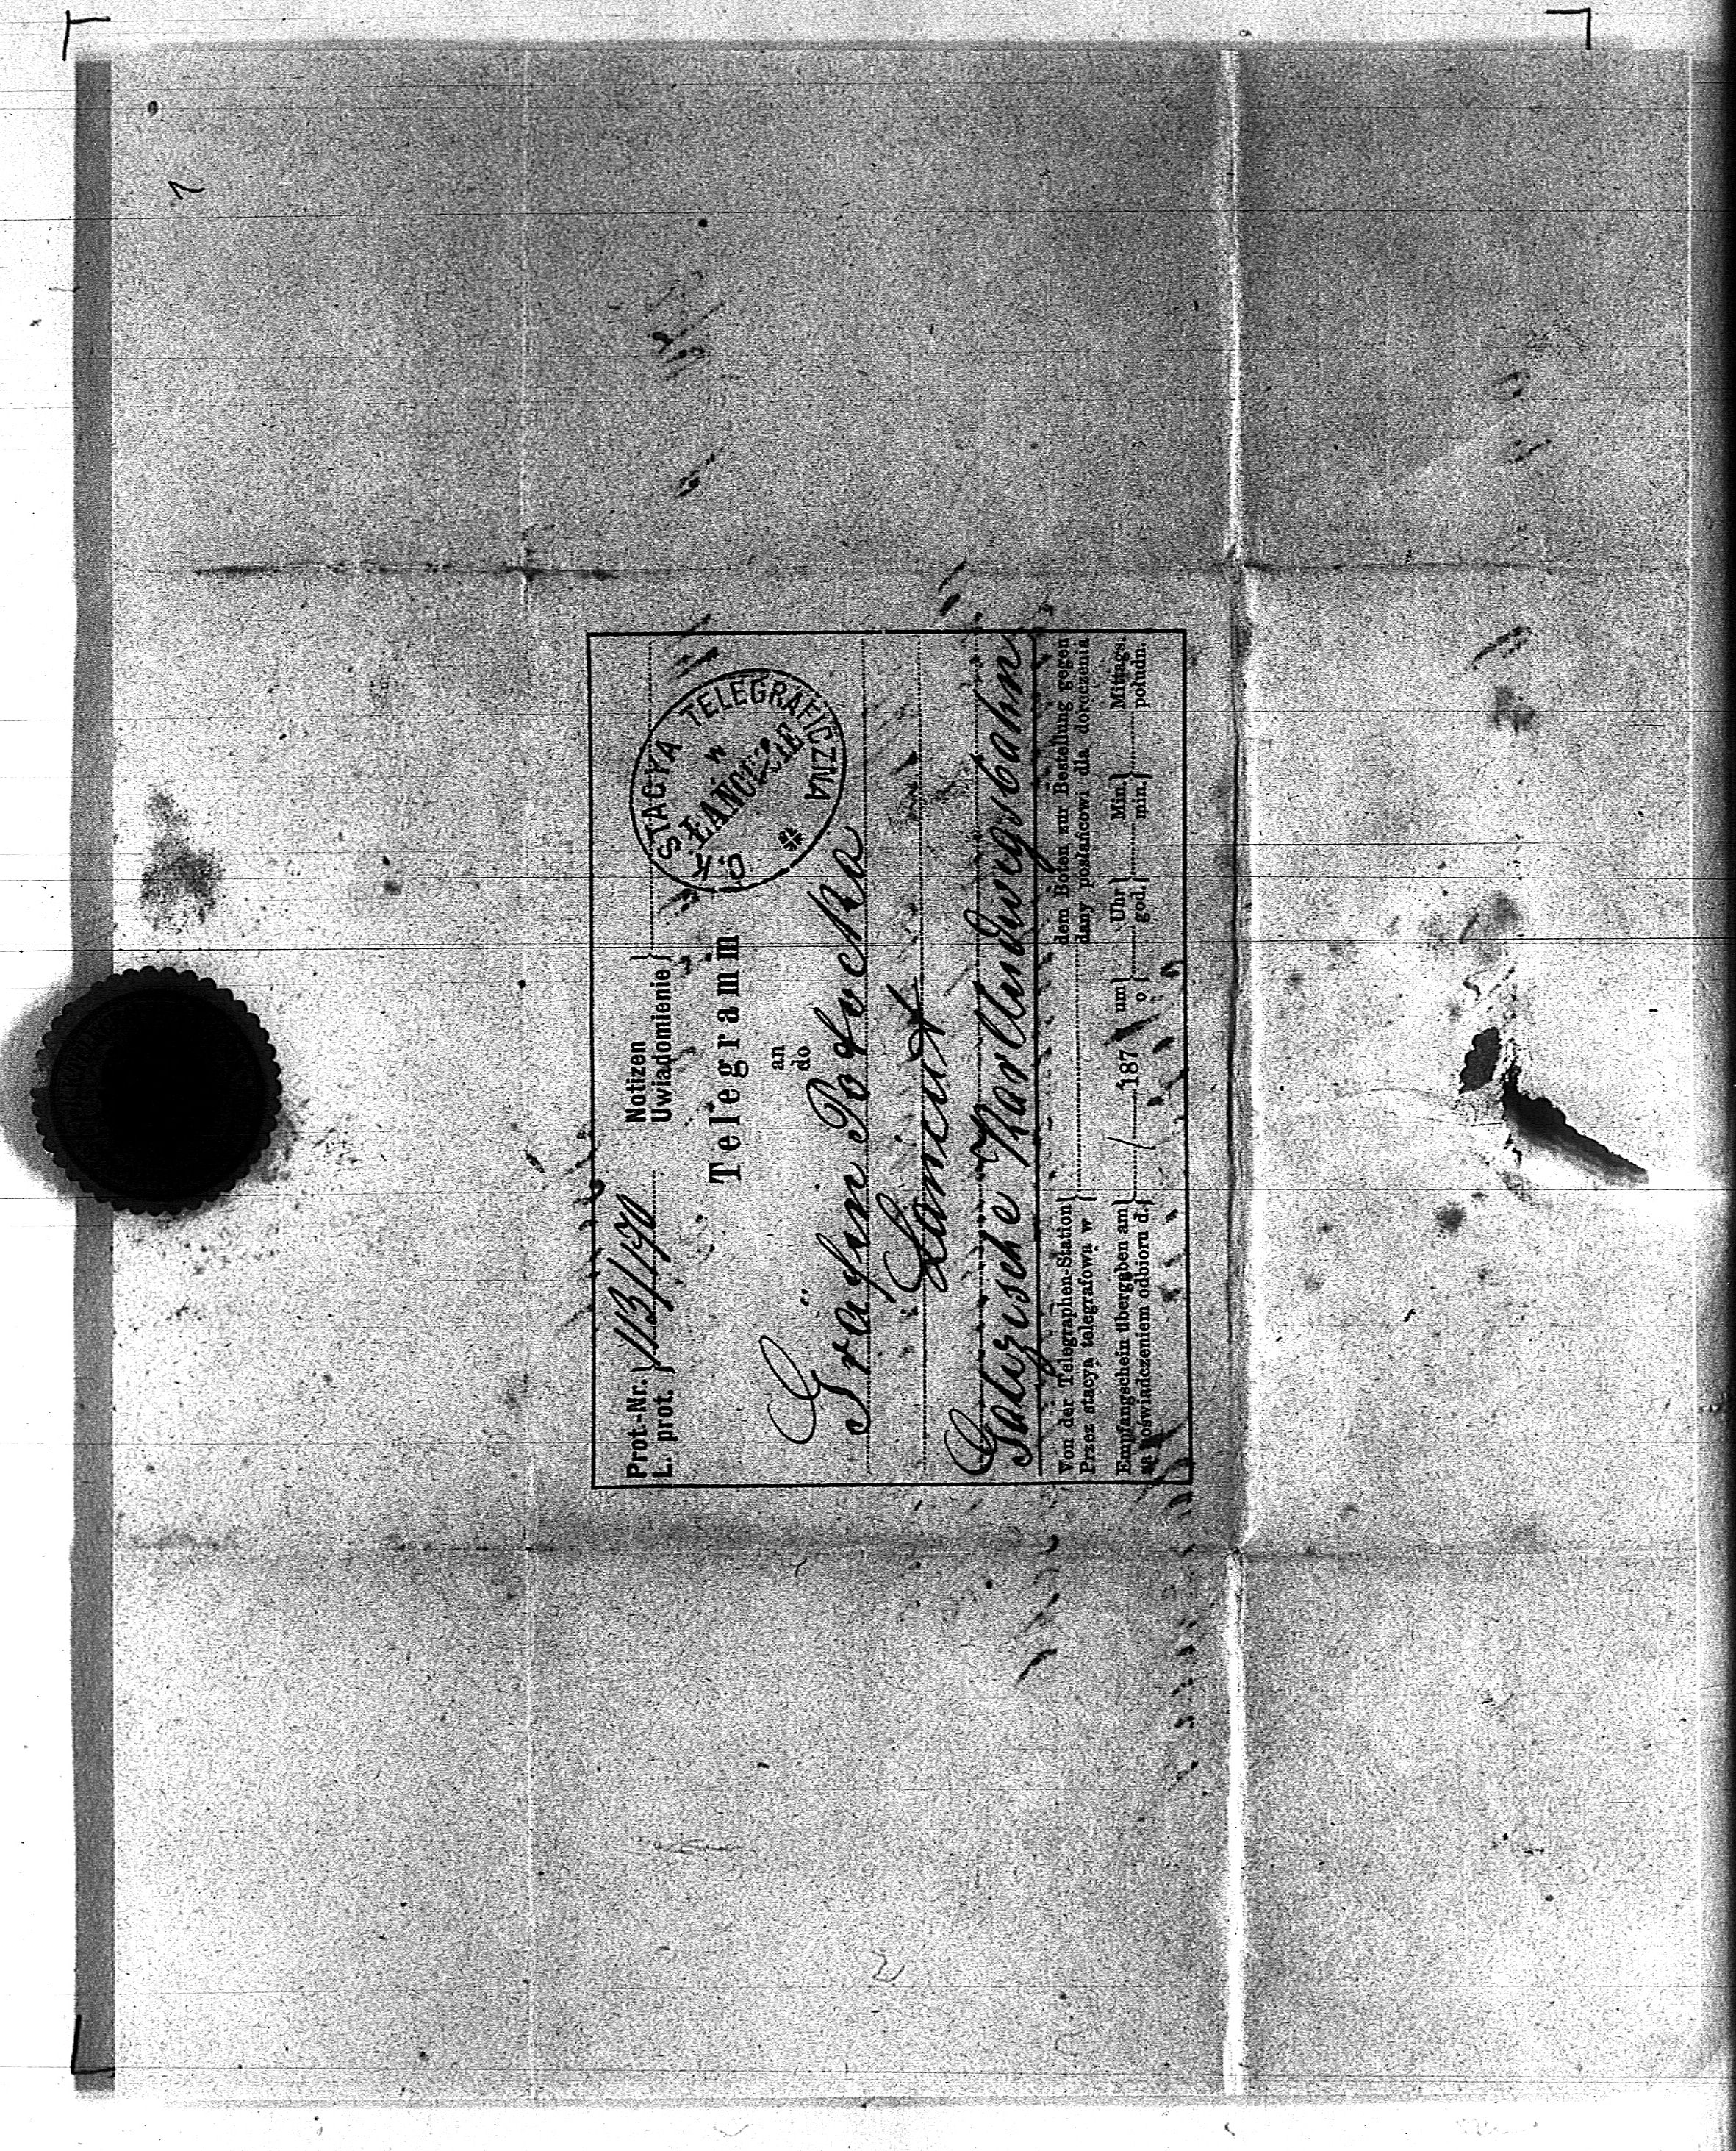 Prot-Nr.
L. prot.
Notizen
Uwiadomienie
C. K. STACYA TELEGRAFICZNA
w
ŁAŃCUCIE
Telegramm
an
do
Gräfin Potocka
Lancut
Galizische Karl Ludwigsbahn
Von der Telegraphen-Station dem Boten zur Bestellung gegen
Przez stacyą telegrafową w dany posłańcowi dla doręczenia
Empfangschein übergeben am 187 um Uhr Min. Mittags.
za poświadczeniem odbioru d. o god. min. połudn.